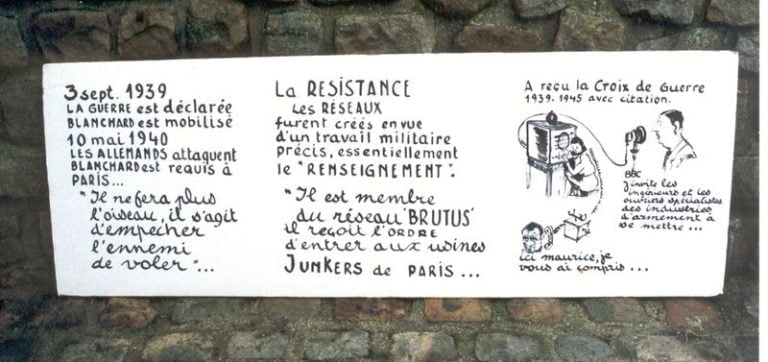 3 sept. 1939
LA GUERRE est déclarée
BLANCHARD est mobilisé
10 mai 1940
LES ALLEMANDS attaquent
BLANCHARD est requis à
PARIS...
"Il ne fera plus
l'oiseau, il s'agit
d'empêcher
l'ennemi
de voler"...
La RESISTANCE
Les RÉSEAUX
furent créés en vue
d'un travail militaire
précis, essentiellement
le "RENSEIGNEMENT".
"Il est membre
du réseau 'BRUTUS'
il reçoit l'ORDRE
d'entrer aux usines
JUNKERS de PARIS ...
A reçu la Croix de Guerre
1939.1945 avec citation.
BBC
J'invite les
ingénieurs et les
ouvriers spécialistes
des industries
d'armement à
se mettre ...
ici maurice, je
vous ai compris ...